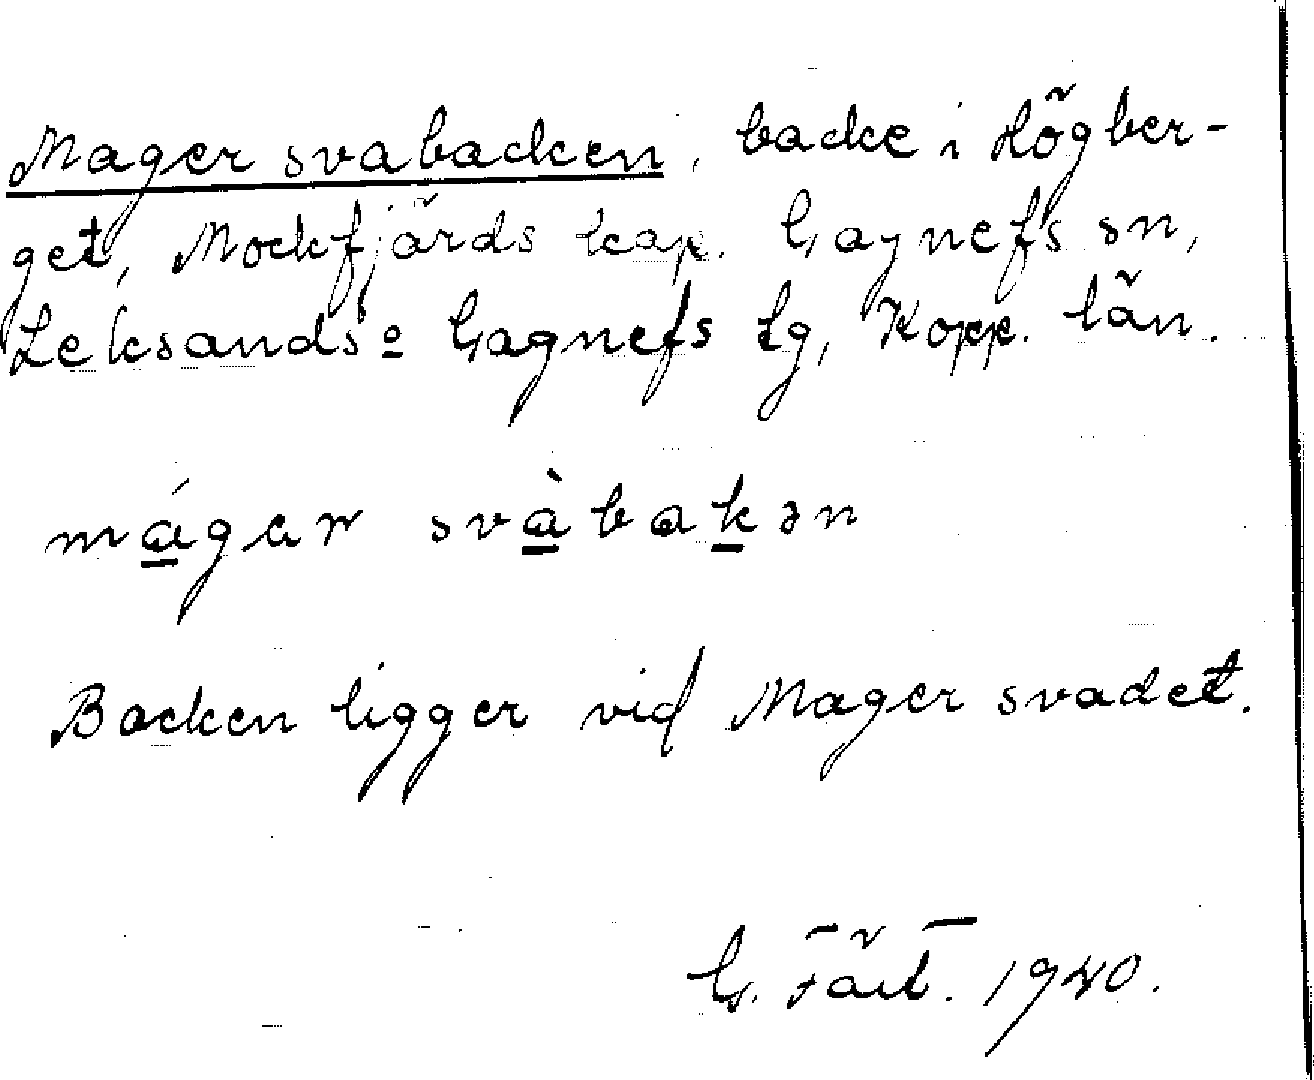 Mager svabacken, backe i Högber-
get, Mockfjärds kap. Gagnefs sn,
Leksands o Gagnefs tg, Kopp. län.
mágar svàbakən
Backen ligger vid Mager svadet.
G. 1940.